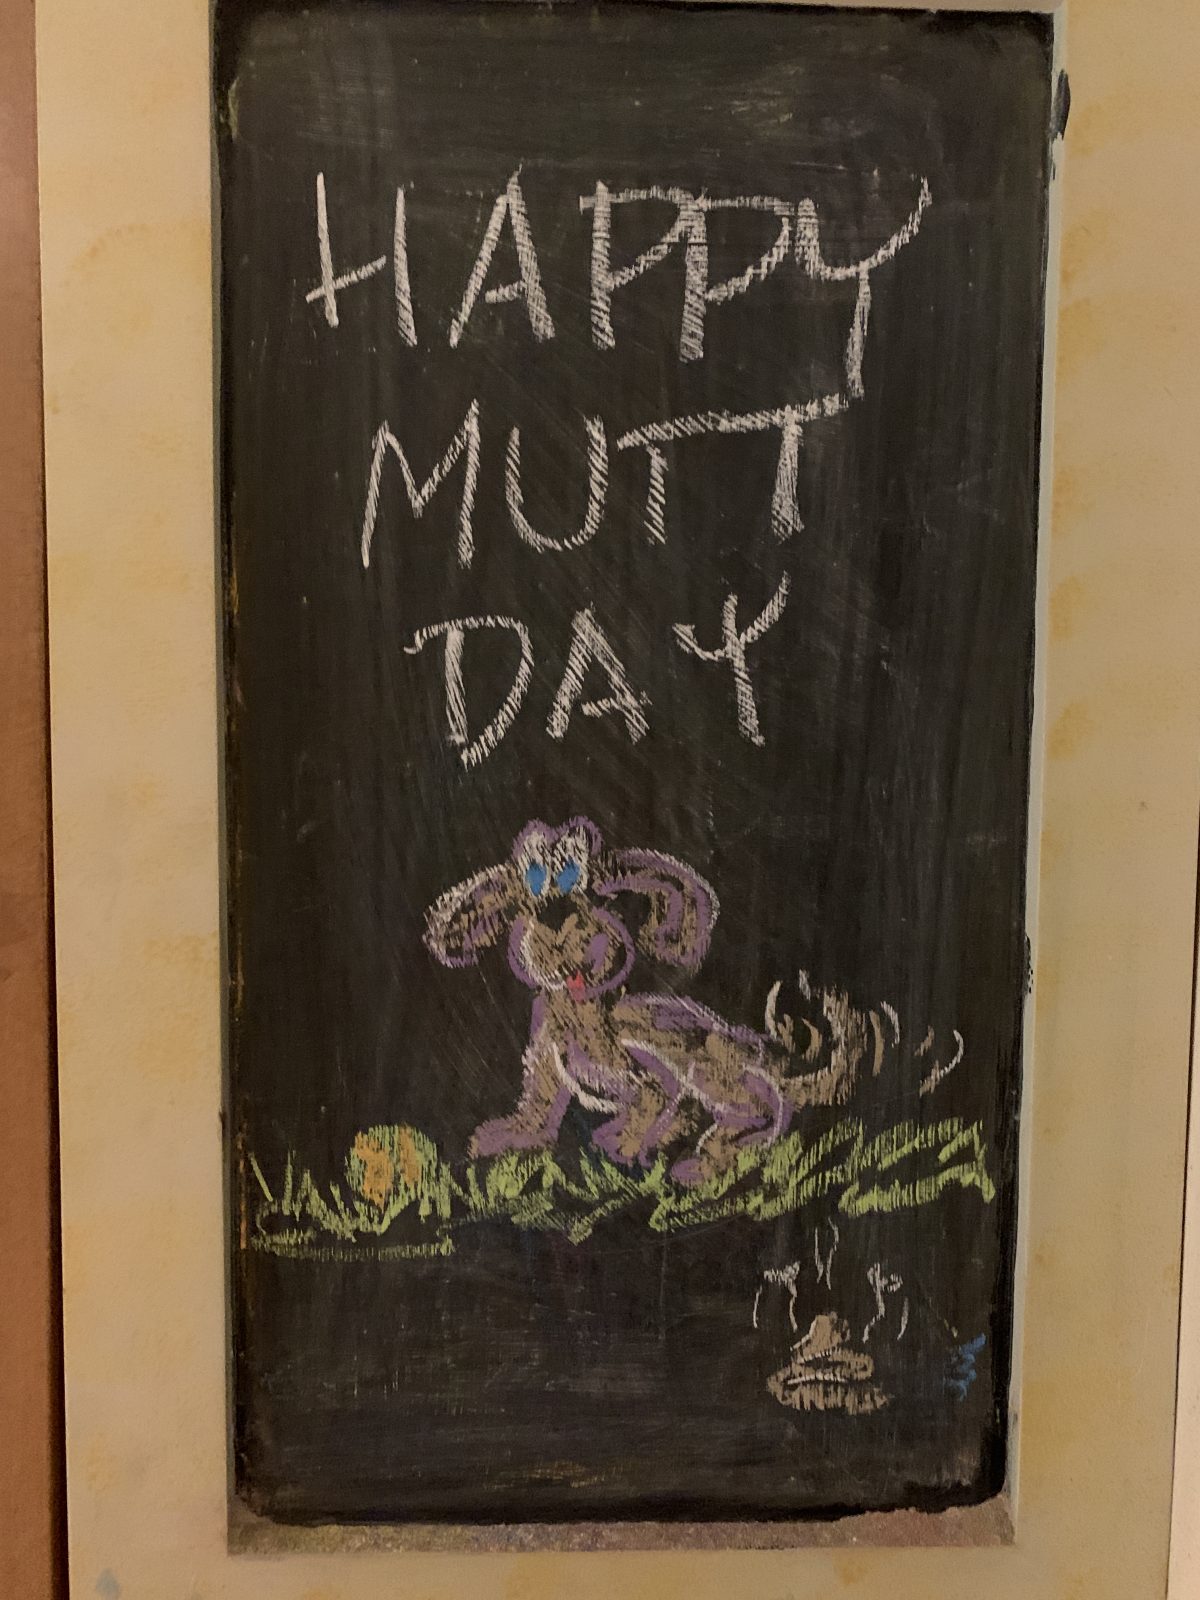 HAPPY
MUTT
DAY